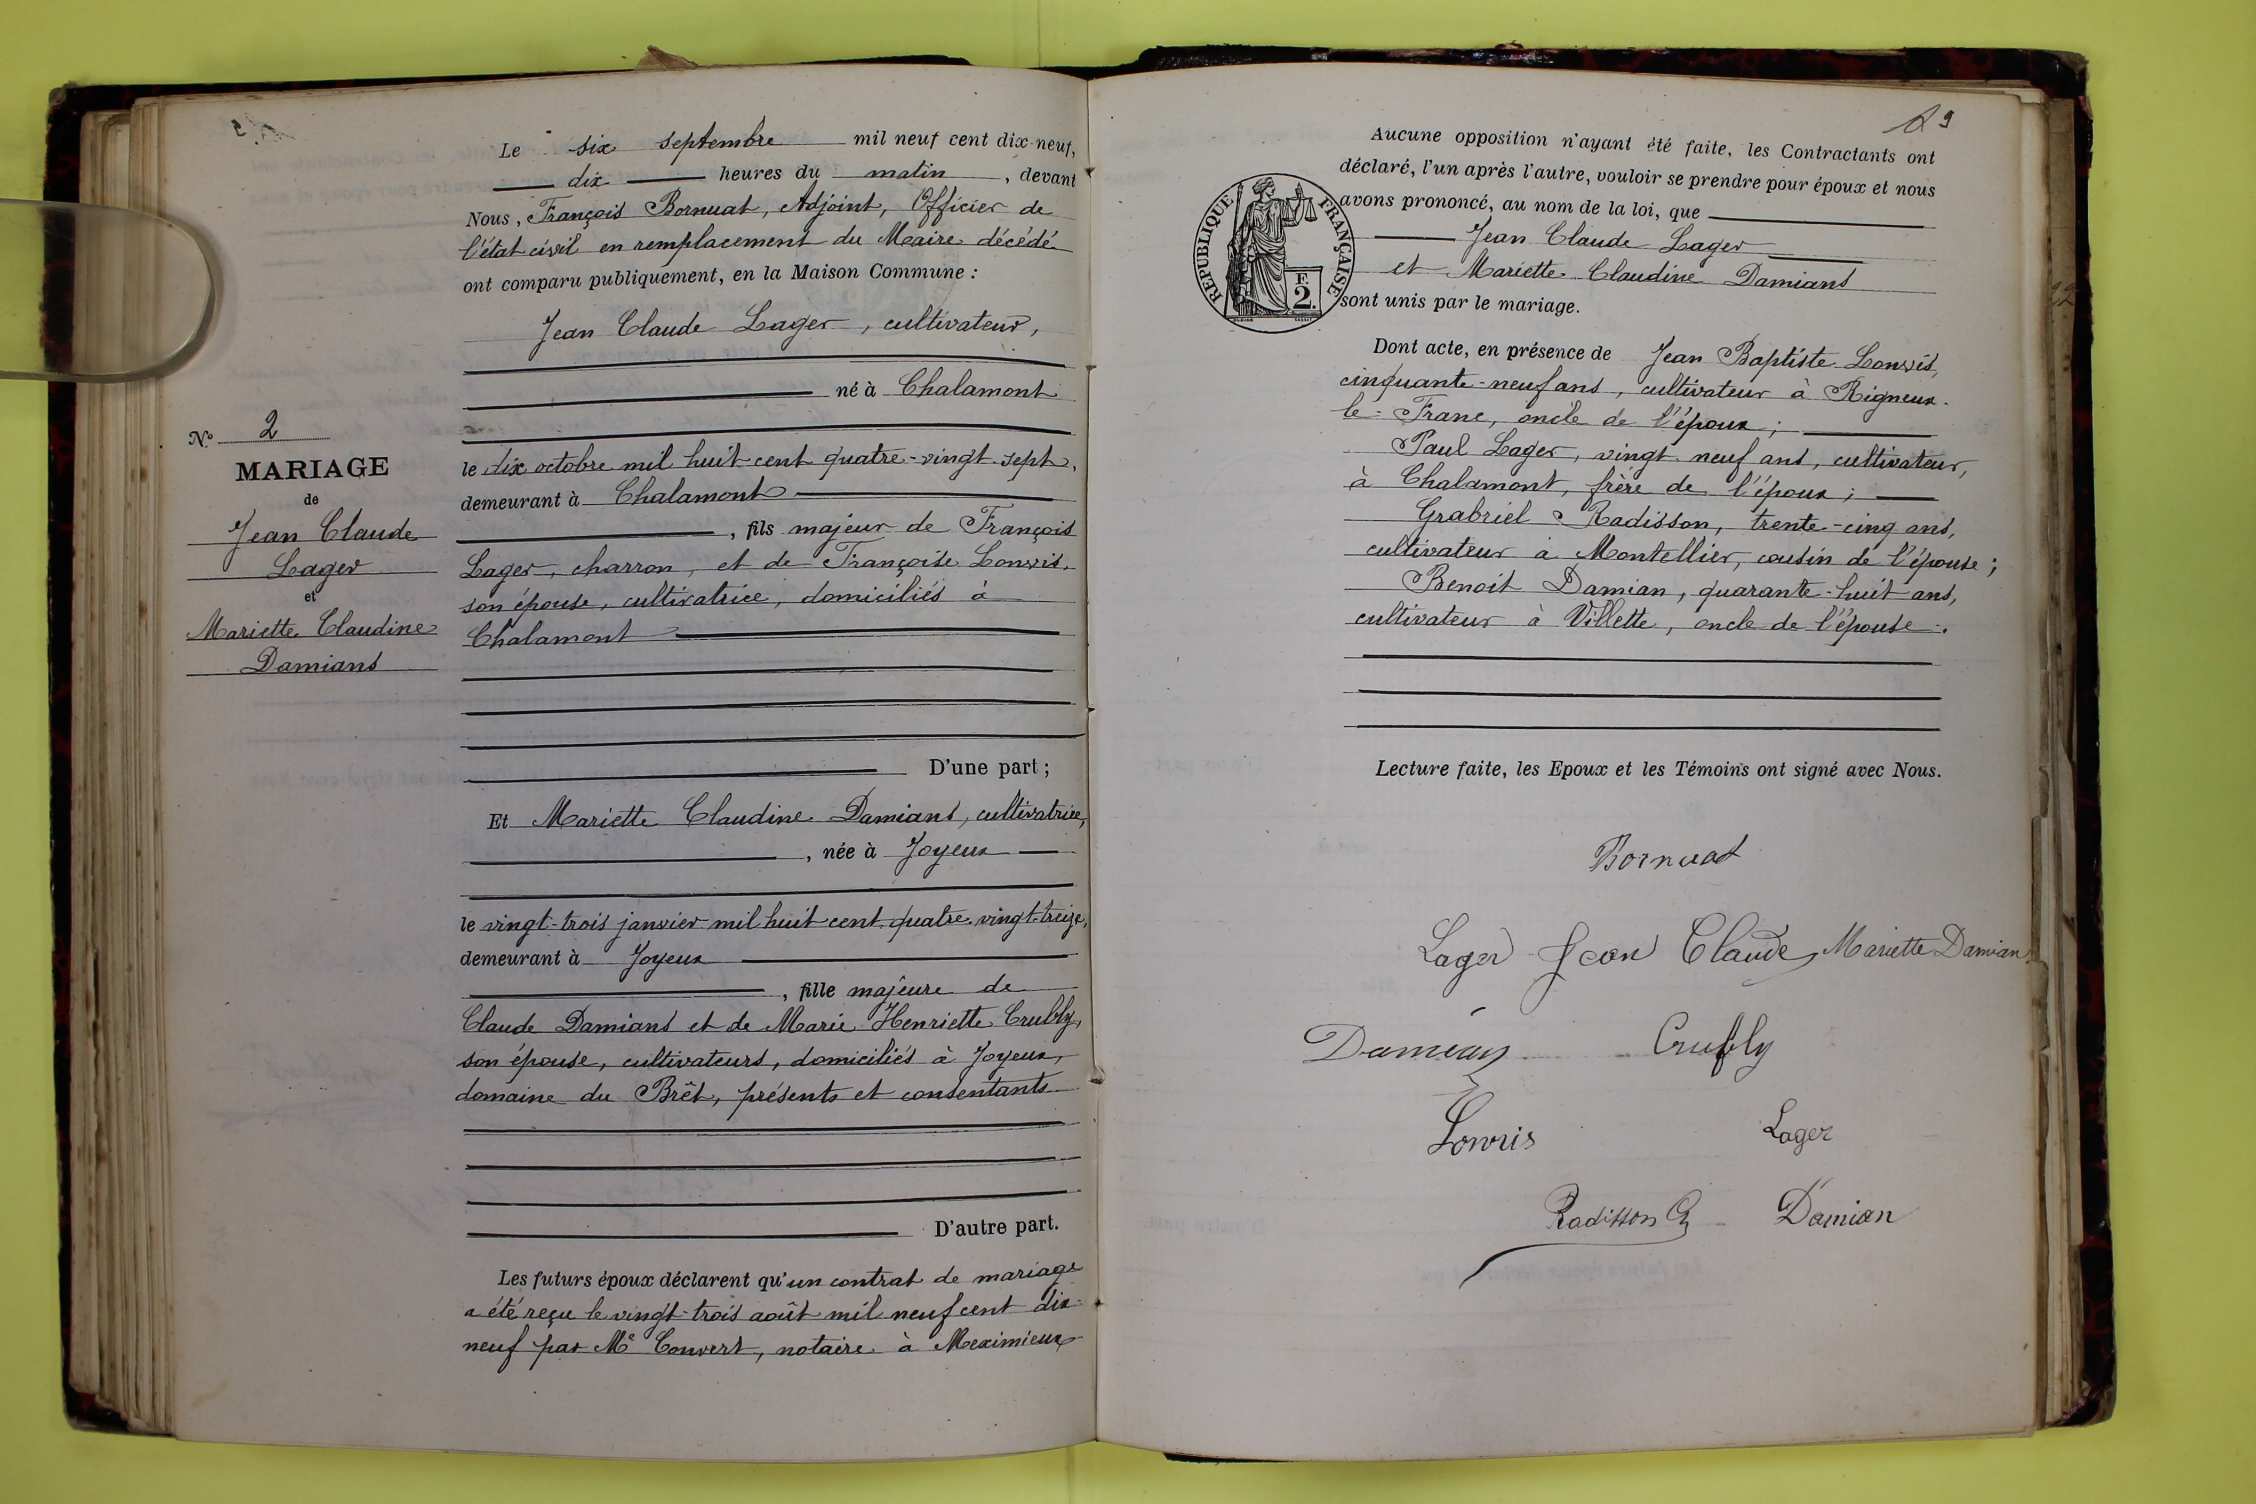 Nº 2
MARIAGE
de
Jean Claude
Lager
et
Mariette Claudine
Damians
Le six septembre mil neuf cent dix-neuf,
dix heures du matin, devant
Nous, François Bornuat, Adjoint, Officier de
l'état civil en remplacement du Maire décédé
ont comparu publiquement, en la Maison Commune :
Jean Claude Lager, cultivateur,
né à Chalamont
le dix octobre mil huit cent quatre-vingt sept,
demeurant à Chalamont
, fils majeur de François
Lager, charron, et de Françoise Lonvis,
son épouse, cultivatrice, domiciliés à
Chalamont
D'une part ;
Et Mariette Claudine Damians, cultivatrice,
, née à Joyeux
le vingt-trois janvier mil huit cent quatre-vingt-treize,
demeurant à Joyeux
, fille majeure de
Claude Damians et de Marie Henriette Crubly,
son épouse, cultivateurs, domiciliés à Joyeux,
domaine du Brêt, présents et consentants
D'autre part.
Les futurs époux déclarent qu'un contrat de mariage
a été reçu le vingt-trois août mil neuf cent dix-
neuf par Me Convert, notaire à Meximieux
Aucune opposition n'ayant été faite, les Contractants ont
déclaré, l'un après l'autre, vouloir se prendre pour époux et nous
avons prononcé, au nom de la loi, que
Jean Claude Lager
et Mariette Claudine Damians
sont unis par le mariage.
RÉPUBLIQUE FRANÇAISE
F.
2.
Dont acte, en présence de Jean Baptiste Lonvis,
cinquante-neuf ans, cultivateur à Rigneux-
le-Franc, oncle de l'époux ;
Paul Lager, vingt-neuf ans, cultivateur,
à Chalamont, frère de l'époux ;
Grabriel Radisson, trente-cinq ans,
cultivateur à Montellier, cousin de l'épouse ;
Benoit Damian, quarante-huit ans,
cultivateur à Villette, oncle de l'épouse.
Lecture faite, les Epoux et les Témoins ont signé avec Nous.
Bornuat
Lager Jean Claude Mariette Damians
Damians Crubly
Lonvis Lager
Radisson G Damian